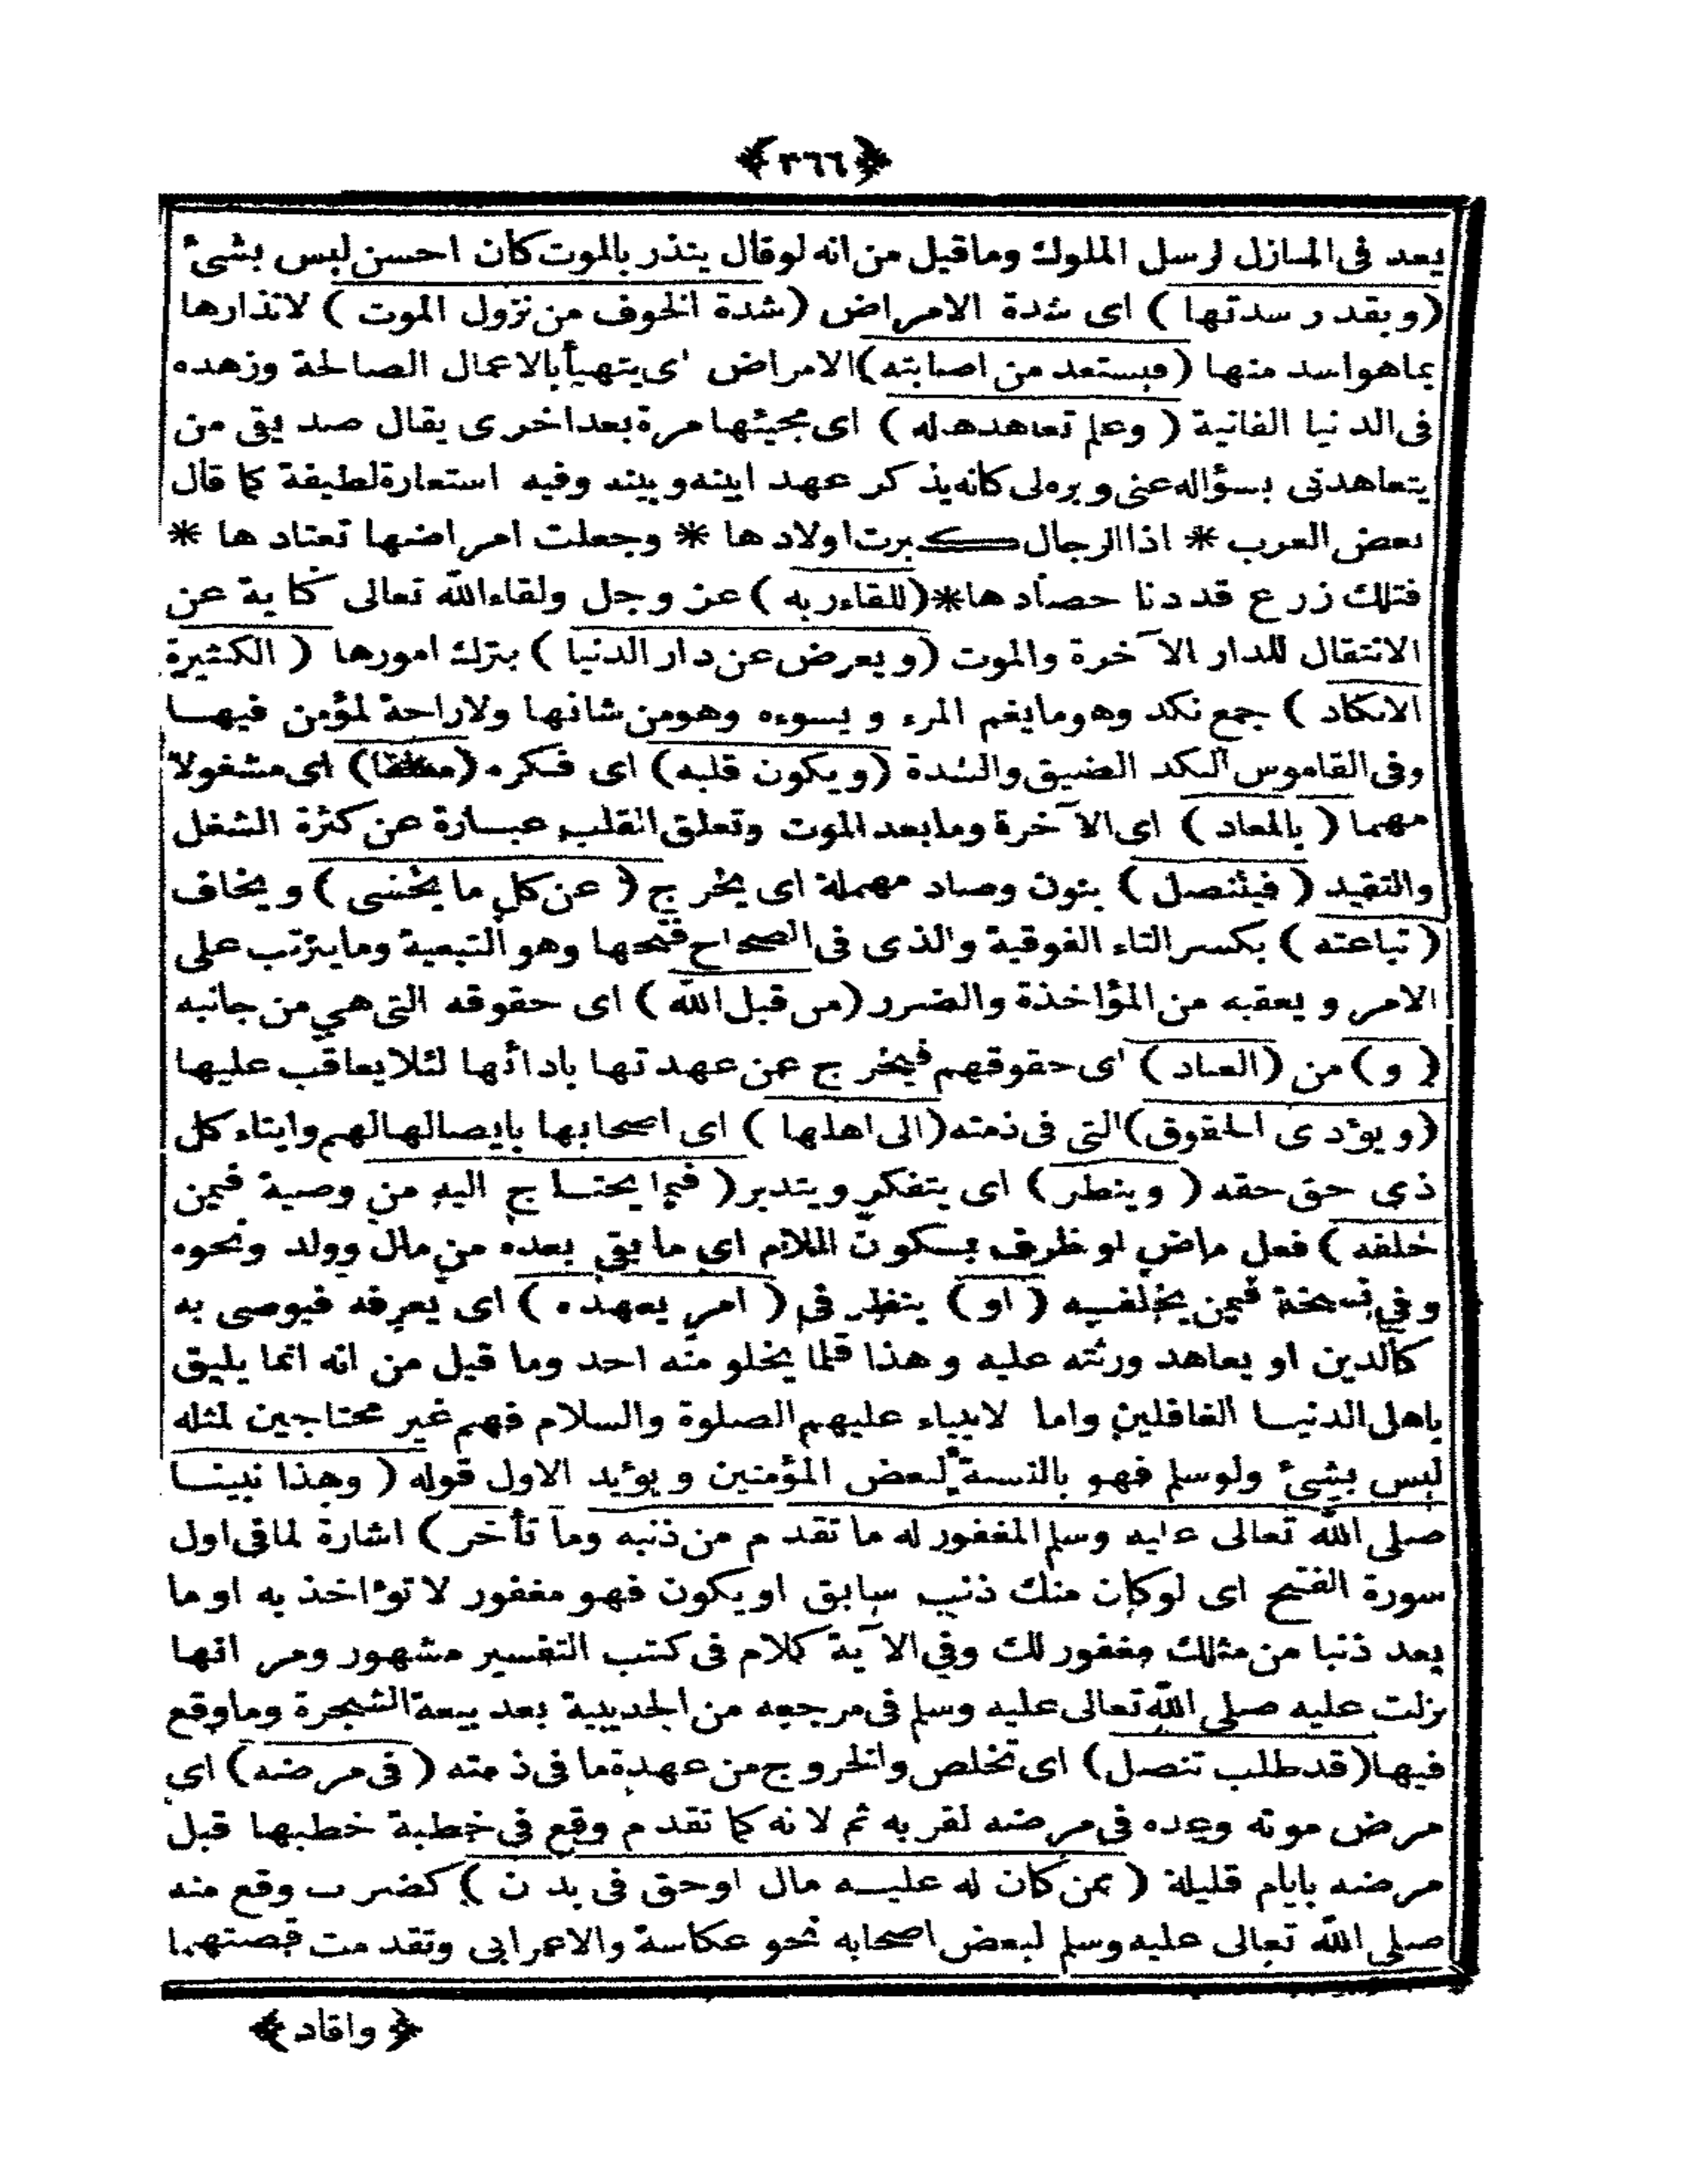 ﴿٣٦٦﴾
يعد فى المنازل لرسل الملوك وماقيل من انه لوقال ينذر بالموت كان احسن ليس بشئ
(وبقدر شدتها) اى شدة الامراض (شدة الخوف من نزول الموت) لانذارها
بماهواشد منها (فيستعد من اصابته) الامراض اى يتهيأ بالاعمال الصالحة وزهده
فى الدنيا الفانية (وعلم تعاهدها له) اى مجيئها مرة بعداخرى يقال صديقى من
يتعاهدنى بسؤاله عنى وبره لى كانه يذكر عهد ابينه وبينه وفيه استعارة لطيفة كما قال
بعض العرب * اذا الرجال كبرت اولادها * وجعلت امراضها تعتادها *
فتلك زرع قد دنا حصادها * (للقاءربه) عز وجل ولقاءالله تعالى كناية عن
الانتقال للدار الآخرة والموت (ويعرض عن دار الدنيا) بترك امورها (الكثيرة
الانكاد) جمع نكد وهومايغم المرء ويسوءه وهومن شانها ولاراحة لمؤمن فيها
وفى القاموس النكد الضيق والشدة (ويكون قلبه) اى فكره (معلقا) اى مشغولا
مهما (بالمعاد) اى الآخرة ومابعد الموت وتعلق القلب عبارة عن كثرة الشغل
والتقيد (فيتنصل) بنون وصاد مهملة اى يخرج (عن كل ما يخشى) ويخاف
(تباعته) بكسر التاء الفوقية والذى فى الصحاح فتحها وهو التبعية ومايترتب على
الامر ويعقبه من المؤاخذة والضرر (من قبل الله) اى حقوقه التى هى من جانبه
(و) من (العباد) اى حقوقهم فيخرج عن عهدتها بادائها لئلا يعاقب عليها
(ويؤدى الحقوق) التى فى ذمته (الى اهلها) اى اصحابها بايصالها لهم وايتاء كل
ذى حق حقه (وينظر) اى يتفكر ويتدبر (فيما يحتاج اليه من وصية فيمن
خلفه) فعل ماض او ظرف بسكون اللام اى ما بقى بعده من مال وولد ونحوه
وفى نسخة فيمن يخلفه (او) ينظر فى (امر يعهده) اى يعرفه فيوصى به
كالدين او يعاهد ورثته عليه وهذا قلما يخلو منه احد وما قيل من انه انما يليق
باهل الدنيا الغافلين واما الانبياء عليهم الصلوة والسلام فهم غير محتاجين لمثله
ليس بشئ ولوسلم فهو بالنسبة لبعض المؤمنين ويؤيد الاول قوله (وهذا نبينا
صلى الله تعالى عليه وسلم المغفور له ما تقدم من ذنبه وما تأخر) اشارة لمافى اول
سورة الفتح اى لوكان منك ذنب سابق اويكون فهو مغفور لا تؤاخذ به او ما
يعد ذنبا من مثلك مغفور لك وفى الآية كلام فى كتب التفسير مشهور ومر انها
نزلت عليه صلى الله تعالى عليه وسلم فى مرجعه من الحديبية بعد بيعة الشجرة وماوقع
فيها (قدطلب تنصل) اى تخلص والخروج من عهدة ما فى ذمته (فى مرضه) اى
مرض موته وعده فى مرضه لقربه ثم لانه كما تقدم وقع فى خطبة خطبها قبل
مرضه بايام قليلة (ممن كان له عليه مال اوحق فى بدن) كضرب وقع منه
صلى الله تعالى عليه وسلم لبعض اصحابه نحو عكاسة والاعرابى وتقدمت قصتهما
﴿واقاد﴾